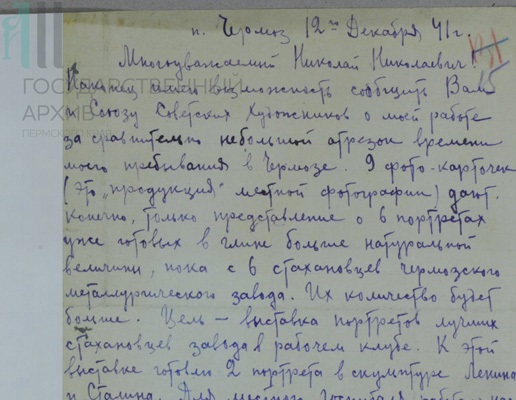 п. Чермоз 12го Декабря 41 г.
131
15
Многоуважаемый Николай Николаевич!
ГОСУДАРСТВЕННЫЙ
АРХИВ
ПЕРМСКОГО КРАЯ
Наконец имею возможность сообщить Вам
и Союзу Советских Художников о моей работе
за сравнительно небольшой отрезок времени
моего пребывания в Чермозе. 9 фото-карточек
(это "продукция" местной фотографии) дают.
конечно, только представление о 6 портретах
уже готовых в глине больше натуральной
величины, пока с 6 стахановцев чермозского
металлургического завода. Их количество будет
больше. Цель — выставка портретов лучших
стахановцев завода в рабочем клубе. К этой
выставке готовлю 2 портрета в скульптуре Ленина
и Сталина. Для местного госпиталя